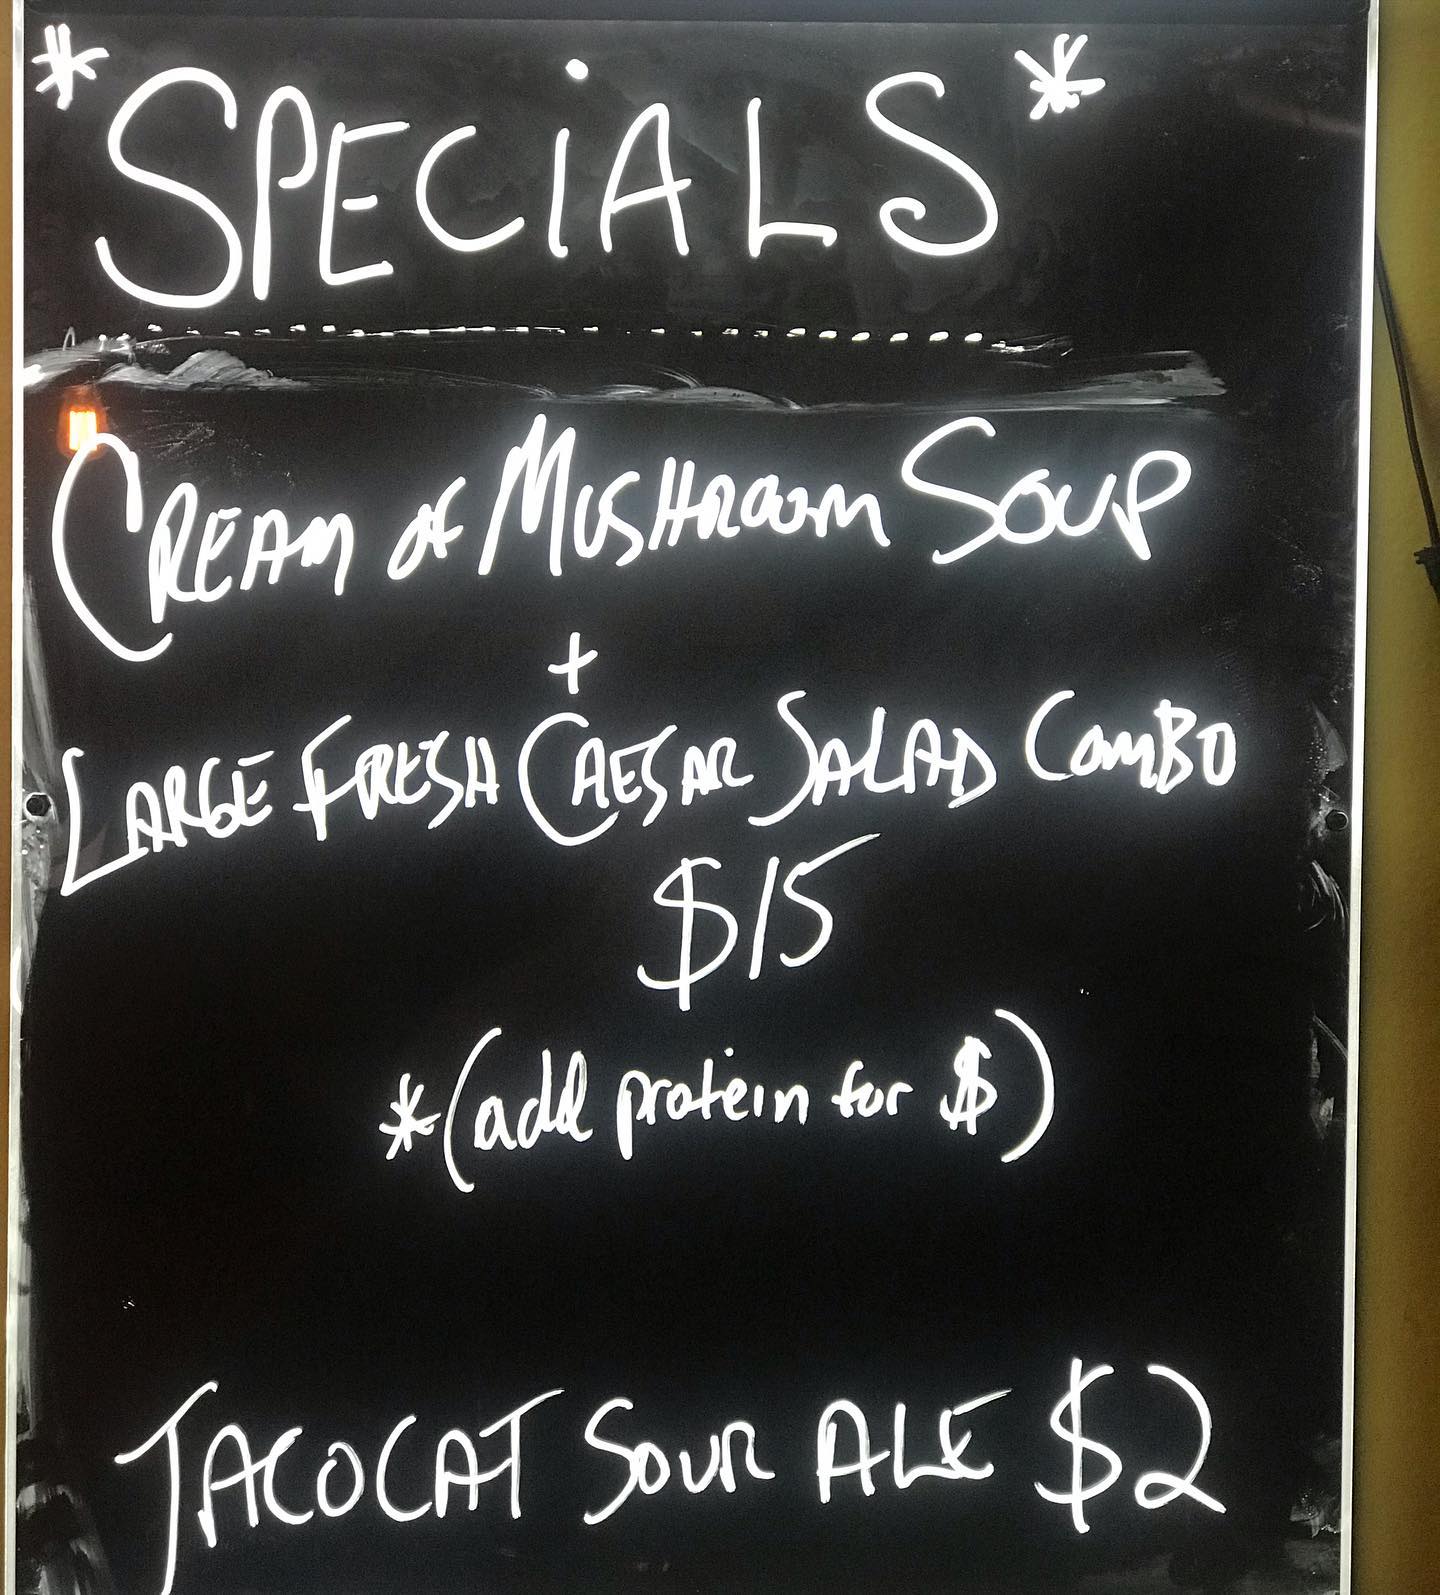 *SPECiALS*
CREAM OF MUSHROOM SOUP
+
LARGE FRESH CAESAR SALAD COMBO
$15
*(add protein for $)
TACOCAT SOUR ALE $2